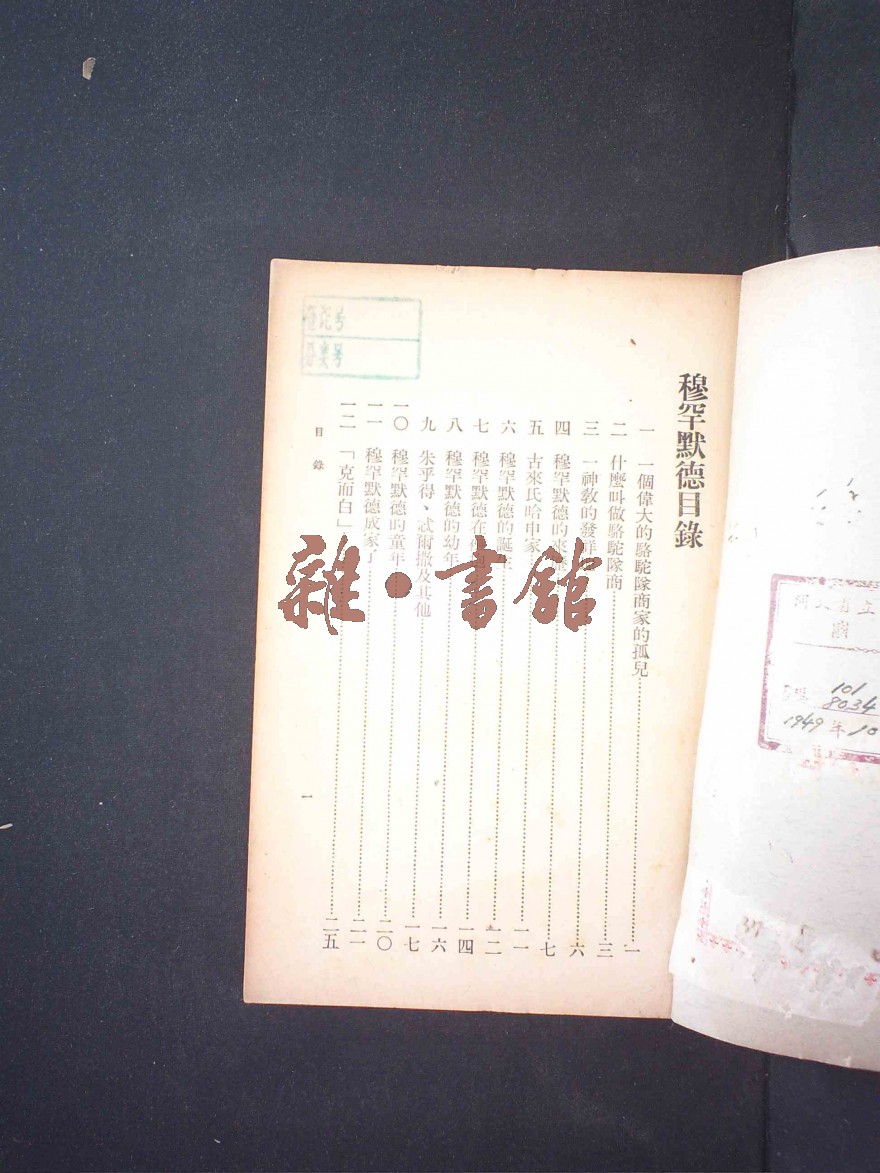 穆罕默德目錄
一 一個偉大的駱駝隊商家的孤兒 一
二 什麼叫做駱駝隊商 三
三 一神教的發祥 六
四 穆罕默德的來 七
五 古來氏哈申家 一一
六 穆罕默德的誕 一二
七 穆罕默德在 一四
八 穆罕默德的幼年 一六
九 朱乎得、忒爾撒及其他 一七
一〇 穆罕默德的童年 二〇
一一 穆罕默德成家了 二一
一二 「克而白」 二五
目錄
一
登记号
分类号
雜·書館
101
8034
1949年10